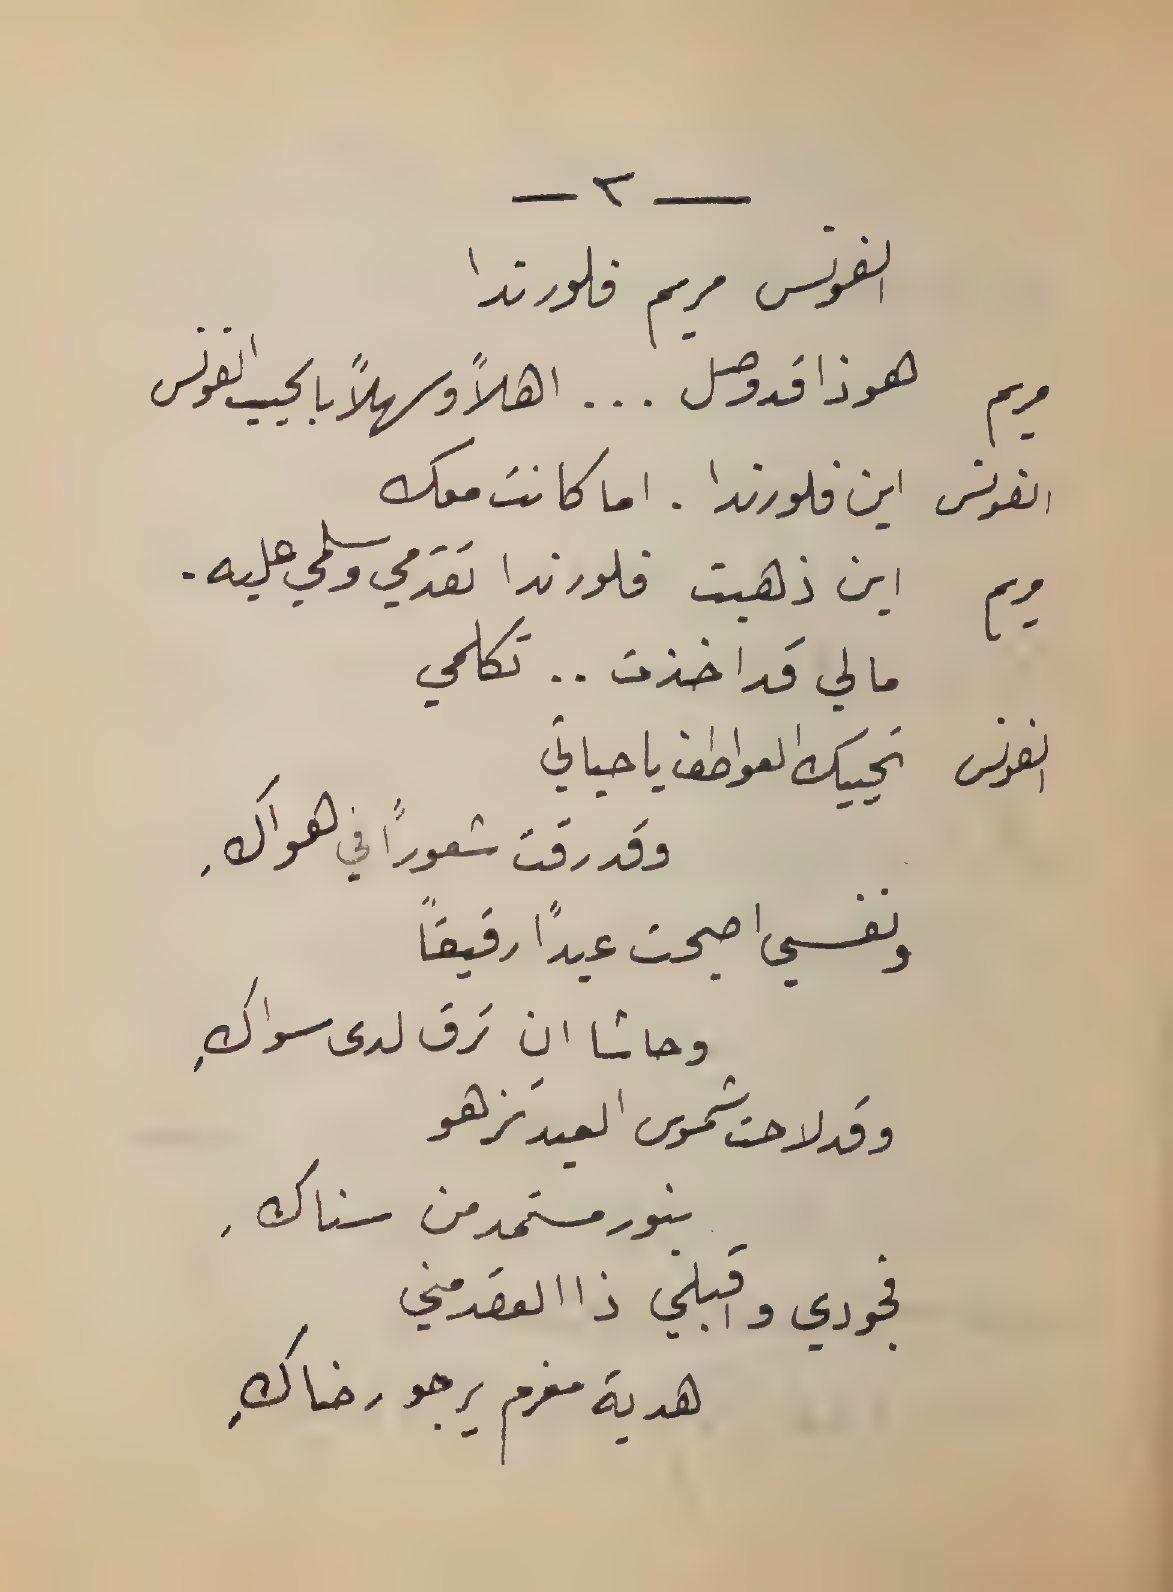 — ٣ —
الفونس مريم فلورندا
مريم هوذا قد وصل ... اهلاً وسهلاً بالحبيب الفونس
الفونس اين فلورندا . اما كانت معك
مريم اين ذهبت فلورندا تقدمي وسلمي عليه .
مالي قد اخذت .. تكلمي
الفونس تحييك العواطف يا حياتي
وقد رقت شعوراً في هواكِ
ونفسي اصبحت عبداً رقيقاً
وحاشا ان ترق لدى سواكِ
وقد لاحت شموس العيد تزهو
بنور مستمد من سناكِ
فجودي واقبلي ذا العقد مني
هدية مغرم يرجو رضاكِ